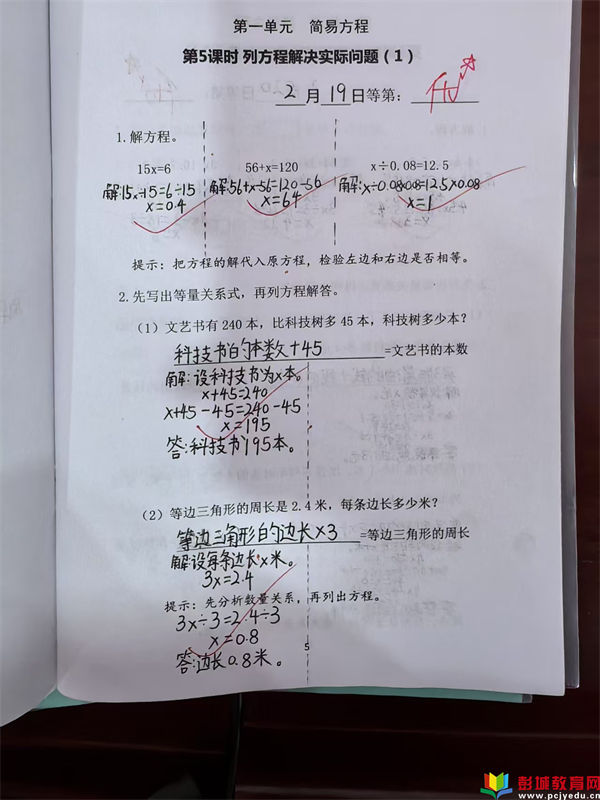 第一单元 简易方程
第5课时 列方程解决实际问题（1）
2月19日等第：
1.解方程。
15x=6 56+x=120 x÷0.08=12.5
解:15x÷15=6÷15 解:56+x-56=120-56 解:x÷0.08×0.08=12.5×0.08
x=0.4 x=64 x=1
提示：把方程的解代入原方程，检验左边和右边是否相等。
2.先写出等量关系式，再列方程解答。
（1）文艺书有240本，比科技树多45本，科技树多少本？
科技书的本数+45=文艺书的本数
解:设科技书为x本。
x+45=240
x+45-45=240-45
x=195
答:科技书195本。
（2）等边三角形的周长是2.4米，每条边长多少米？
等边三角形的边长×3=等边三角形的周长
解设每条边长x米。
3x=2.4
提示：先分析数量关系，再列出方程。
3x÷3=2.4÷3
x=0.8
答:边长0.8米。
5
彭城教育网
www.pcjyedu.cn